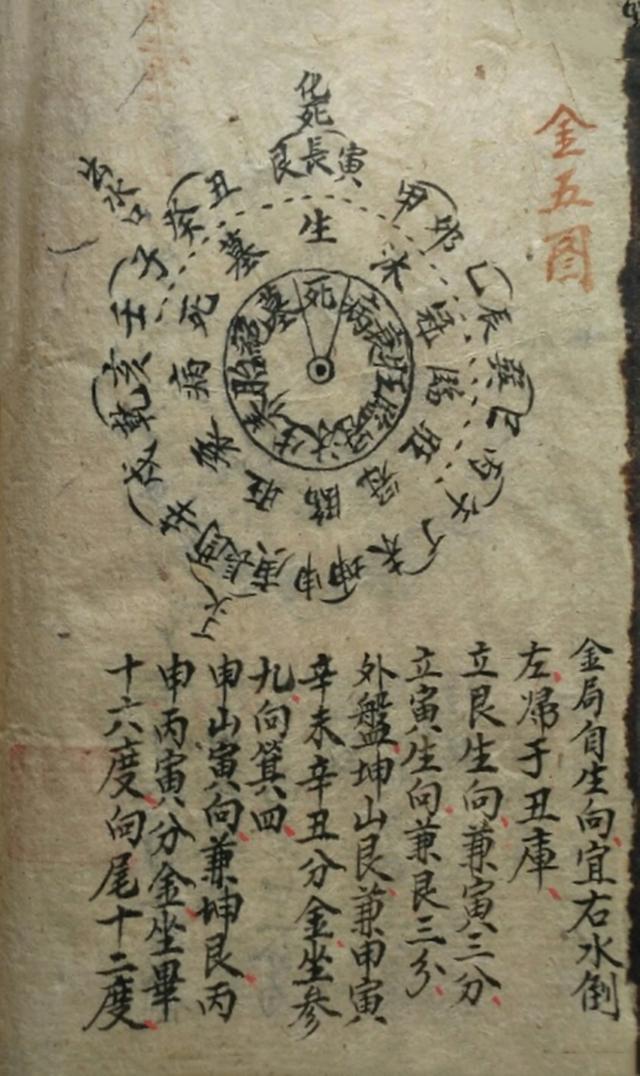 金五圖
化死
艮長寅
甲卯
乙辰
巽巳
丙午
丁未
坤申
庚酉
辛戌
乾亥
壬子
癸丑
出水口
生
沐
冠
臨
旺
衰
病
死
墓
死
病
衰
旺
臨
冠
沐
生
养
胎
絕
墓
金局自生向宜右水倒
左帰于丑庫
立艮生向兼寅三分
立寅生向兼艮三分
外盤坤山艮兼申寅
辛未辛丑分金坐參
九向箕四
申山寅向兼坤艮丙
申丙寅分金坐畢
十六度向尾十二度